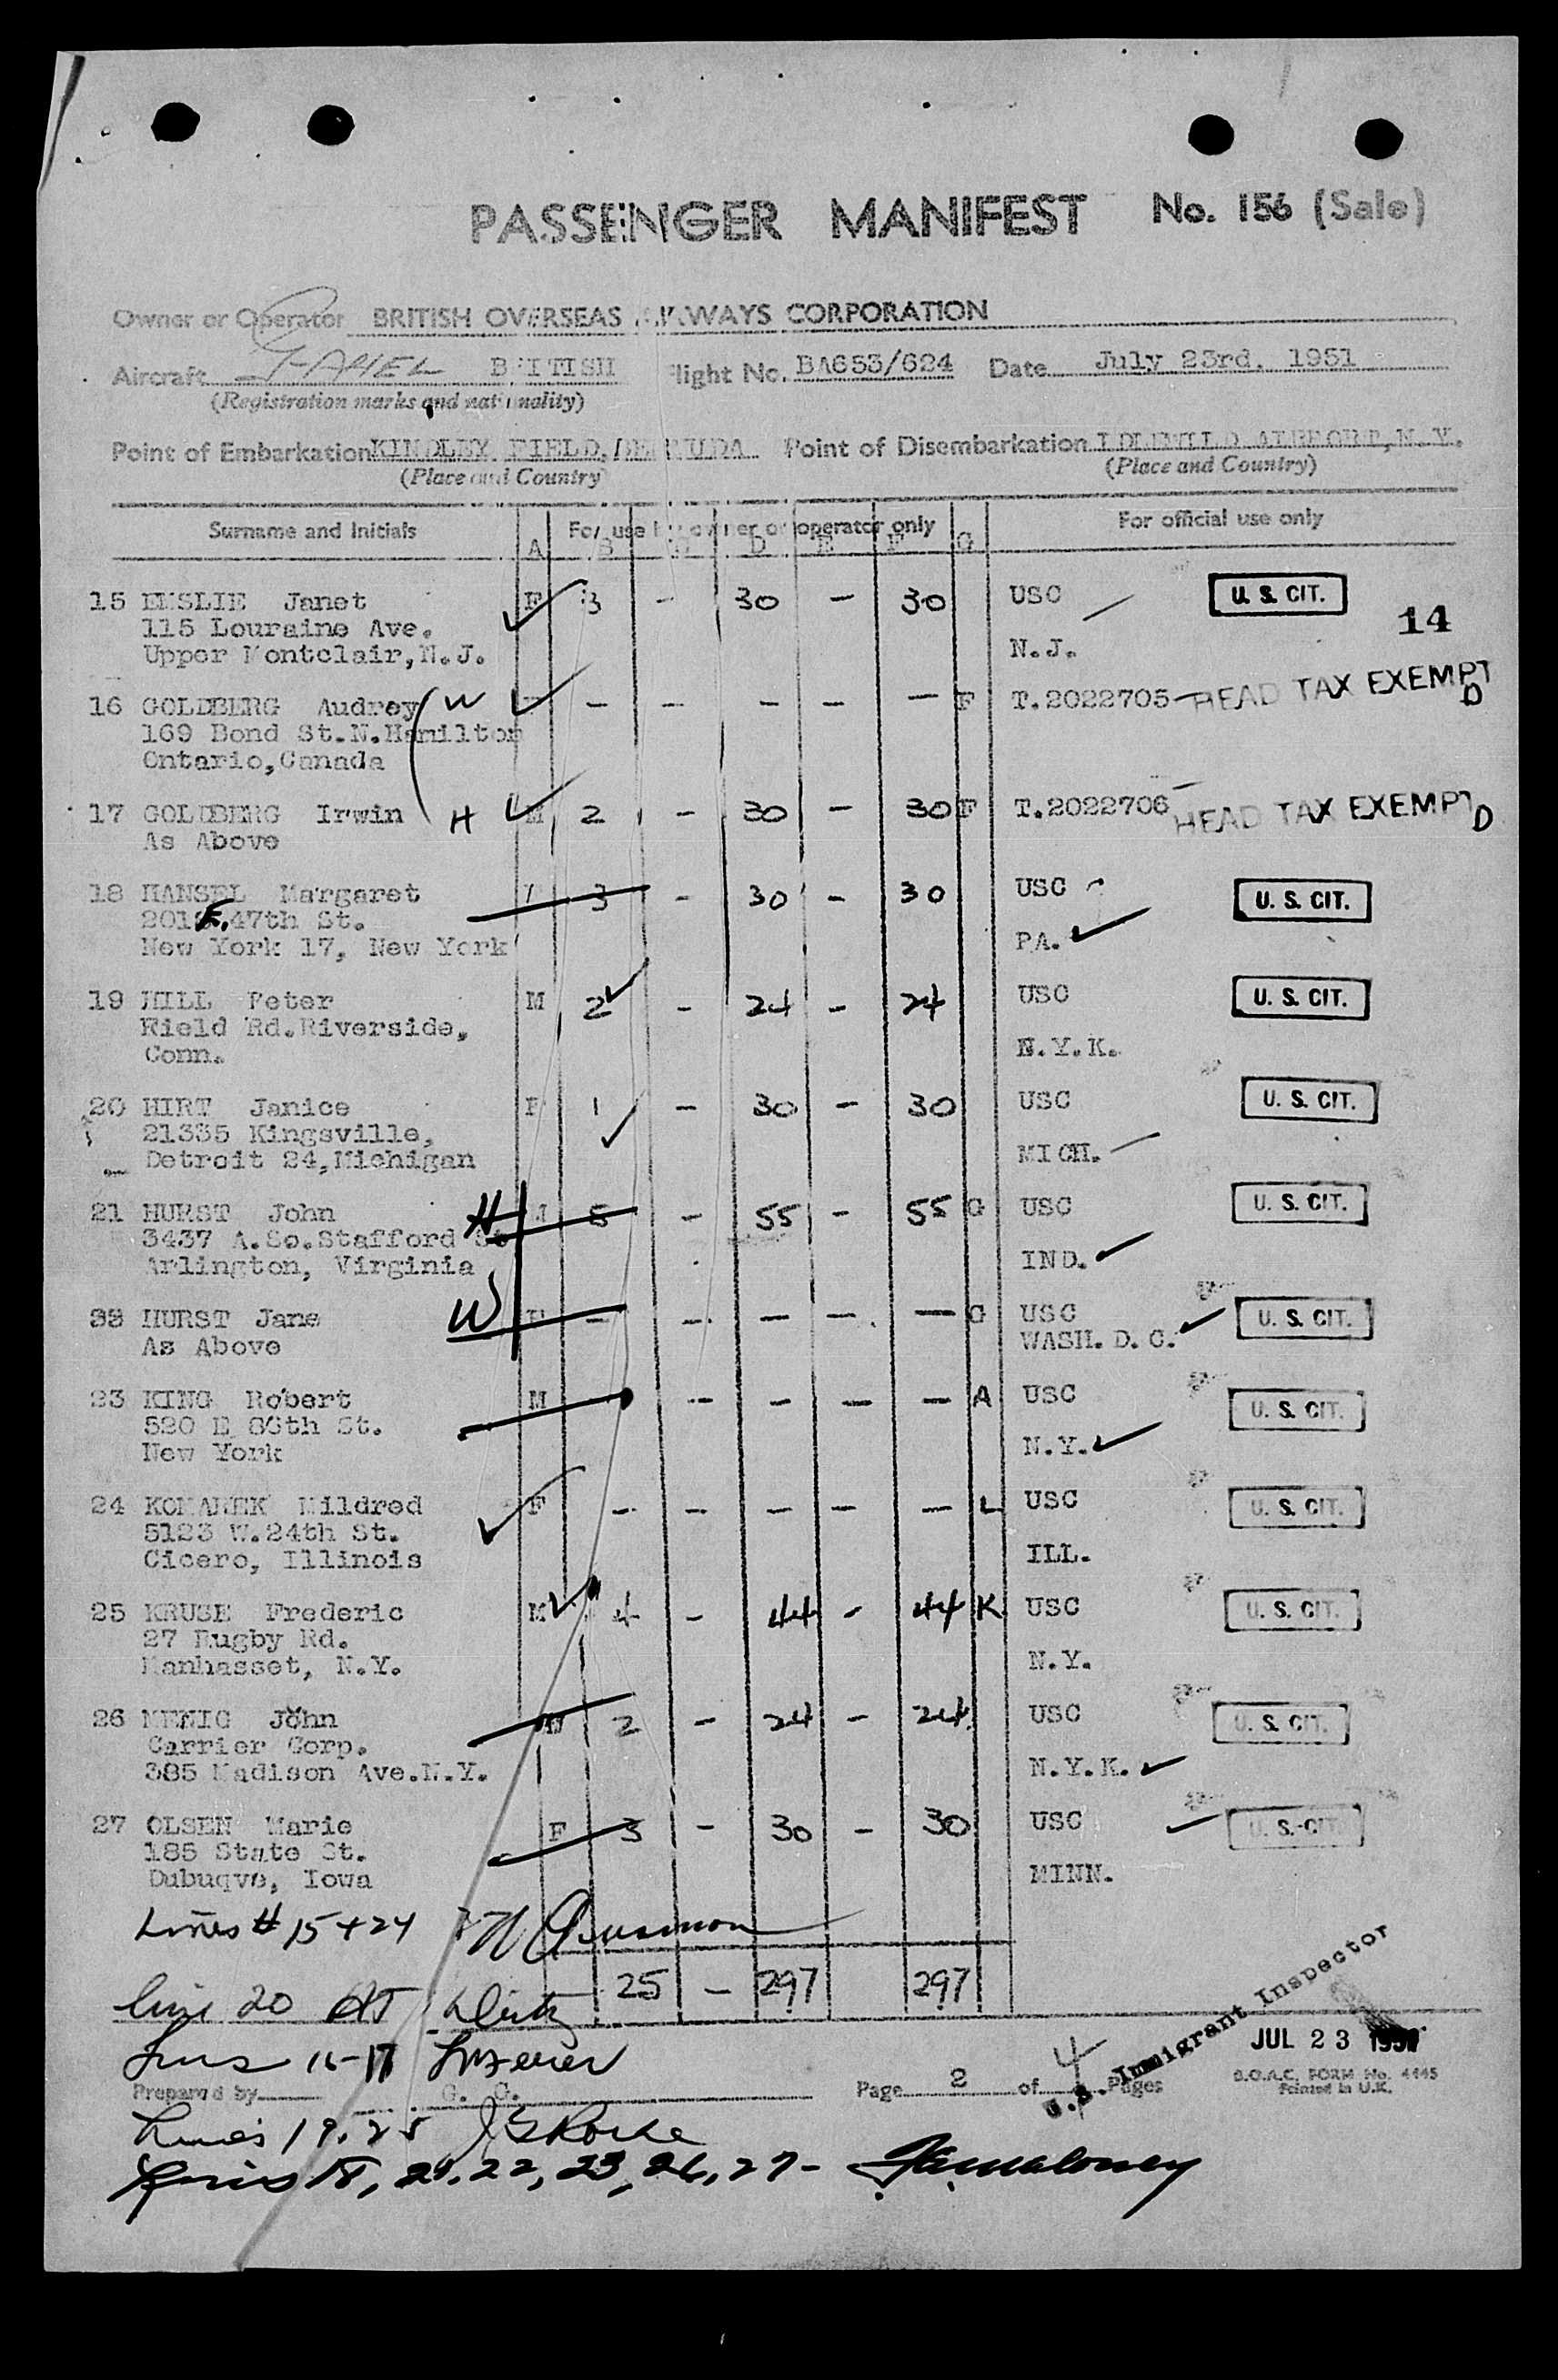 PASSENGER MANIFEST No. 156 (Sale)
Owner or Operator BRITISH OVERSEAS AIRWAYS CORPORATION
Aircraft BRITISH Flight No. BA653/624 Date July 23rd. 1951
(Registration marks and nationality)
Point of Embarkation KINDLEY FIELD, BERMUDA Point of Disembarkation IDLEWILD AIRPORT, N.Y.
(Place and Country) (Place and Country)
Surname and Initials For use by owner or operator only For official use only
A B C D E F G
15 EMSLIE Janet F 3 - 30 - 30 USC U. S. CIT.
115 Louraine Ave. 14
Upper Montclair, N.J. N.J.
16 GOLDBERG Audrey W F - - - - - F T.2022705 HEAD TAX EXEMPT D
169 Bond St.N.Hamilton
Ontario, Canada
17 GOLDBERG Irwin H M 2 - 30 - 30 F T.2022706 HEAD TAX EXEMPT D
As Above
18 HANSEL Margaret F 3 - 30 - 30 USC U. S. CIT.
E. 47th St. PA.
New York 17, New York
19 HILL Peter M 2 - 24 - 24 USC U. S. CIT.
Field Rd.Riverside,
Conn. N.Y.K.
20 HIRT Janice F 1 - 30 - 30 USC U. S. CIT.
21335 Kingsville,
Detroit 24, Michigan MICH.
21 HURST John H M 5 - 55 - 55 G USC U. S. CIT.
3437 A.So.Stafford St
Arlington, Virginia IND.
22 HURST Jane W F - - - - - G USC U. S. CIT.
As Above WASH. D. C.
23 KING Robert M - - - - A USC U. S. CIT.
520 E 86th St.
New York N.Y.
24 KOMAREK Mildred F - - - - - L USC U. S. CIT.
5123 W.24th St.
Cicero, Illinois ILL.
25 KRUSE Frederic M 4 - 44 - 44 K USC U. S. CIT.
27 Rugby Rd.
Manhasset, N.Y. N.Y.
26 MENIG John M 2 - 24 - 24 USC U. S. CIT.
Carrier Corp.
385 Madison Ave.N.Y. N.Y.K.
27 OLSEN Marie F 3 - 30 - 30 USC U. S. CIT.
185 State St.
Dubuqve, Iowa MINN.
Lines # 15 + 24
25 - 297 297
line 20
Lines 16-17
U.S. Immigrant Inspector
JUL 23 1951
Prepared by G. G. Page 2 of 4 Pages
B.O.A.C. FORM No. 4445
Printed in U.K.
Lines 19, 25
Lines 18, 21, 22, 23, 26, 27 -